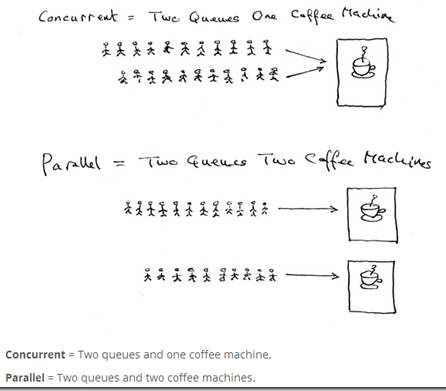 Concurrent = Two Queues One Coffee Machine
Parallel = Two Queues Two Coffee Machines
Concurrent = Two queues and one coffee machine.
Parallel = Two queues and two coffee machines.